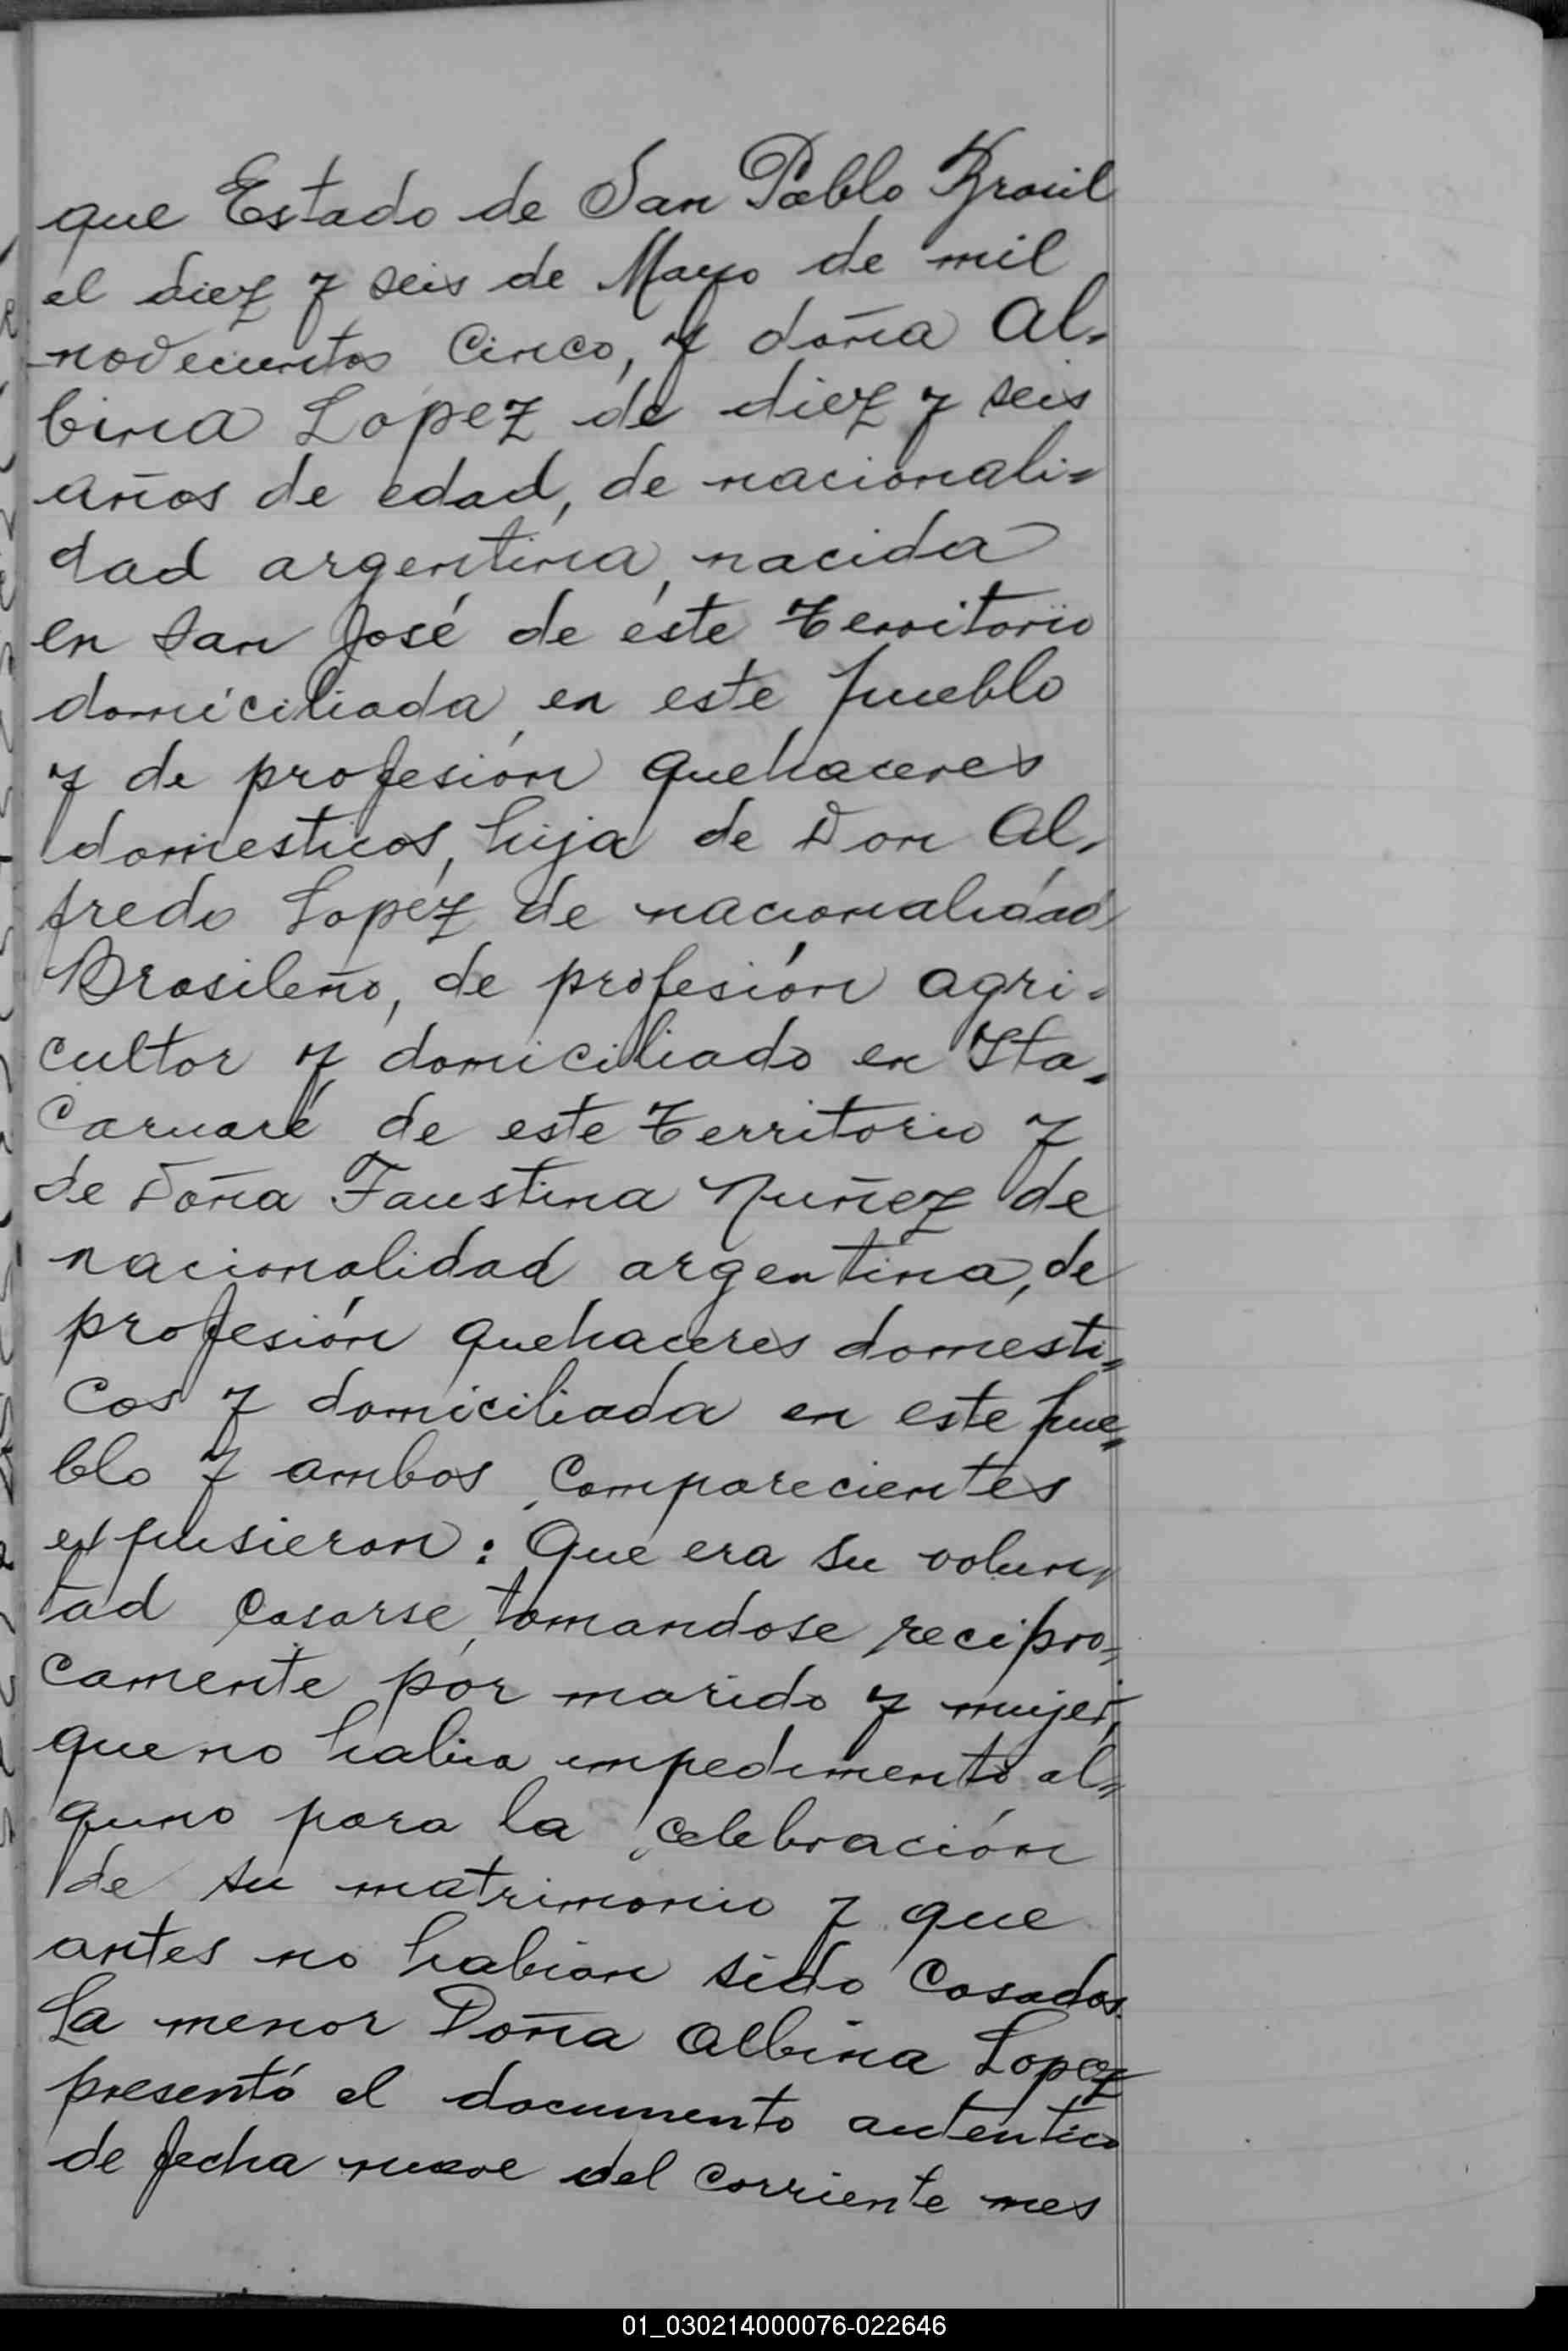 que Estado de San Pablo Brasil
el diez y seis de Mayo de mil
novecientos Cinco, y doña Al-
bina Lopez de diez y seis
años de edad, de nacionali=
dad argentina, nacida
en San José de éste Territorio
domiciliada en este pueblo
y de profesión quehaceres
domesticos, hija de Don Al-
fredo Lopéz de nacionalidad
Brasileño, de profesión agri-
cultor y domiciliado en Ita-
caruaré de este Territorio y
de Doña Faustina Nuñez de
nacionalidad argentina, de
profesión quehaceres domesti=
cos y domiciliada en este pue=
blo y ambos Comparecientes
expusieron: Que era su volun=
tad Casarse, tomandose recipro=
camente por marido y mujer,
que no habia impedimento al=
guno para la celebración
de su matrimonio y que
antes no habian sido Casados.
La menor Doña Albina Lopez
presentó el documento autentico
de fecha nueve del Corriente mes
01_030214000076-022646